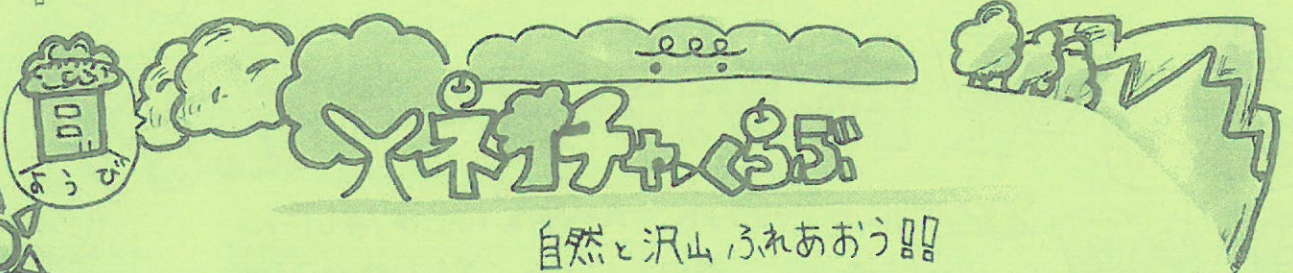 日
ようび
ネイチャーくらぶ
自然と沢山ふれあおう!!